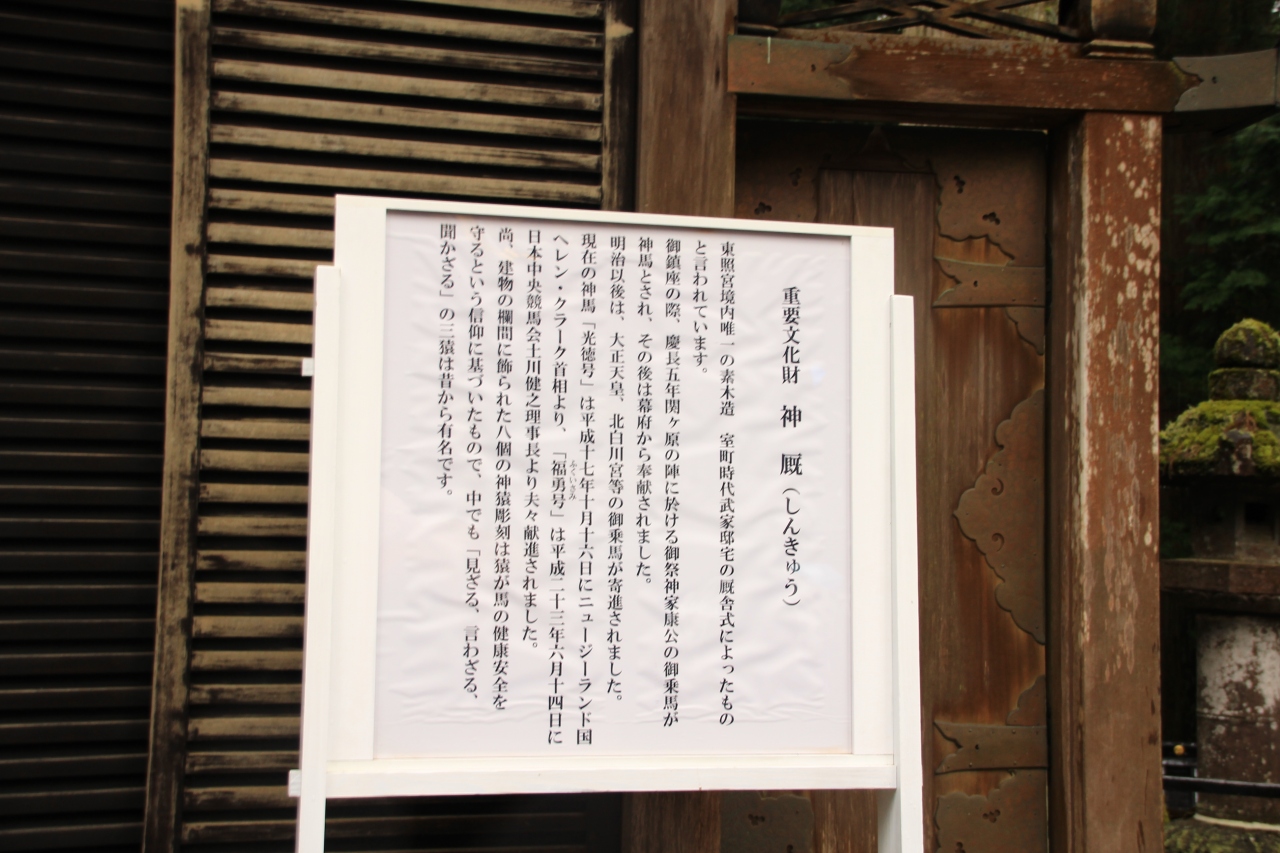 重要文化財　神　厩（しんきゅう）
東照宮境内唯一の素木造　室町時代武家邸宅の厩舎式によったもの
と言われています。
御鎮座の際、慶長五年関ヶ原の陣に於ける御祭神家康公の御乗馬が
神馬とされ、その後は幕府から奉献されました。
明治以後は、大正天皇、北白川宮等の御乗馬が寄進されました。
現在の神馬「光徳号」は平成十七年十月十六日にニュージーランド国
ヘレン・クラーク首相より、「福勇号」は平成二十三年六月十四日に
ふくいさみ
日本中央競馬会土川健之理事長より夫々献進されました。
尚、建物の欄間に飾られた八個の神猿彫刻は猿が馬の健康安全を
守るという信仰に基づいたもので、中でも「見ざる、言わざる、
聞かざる」の三猿は昔から有名です。